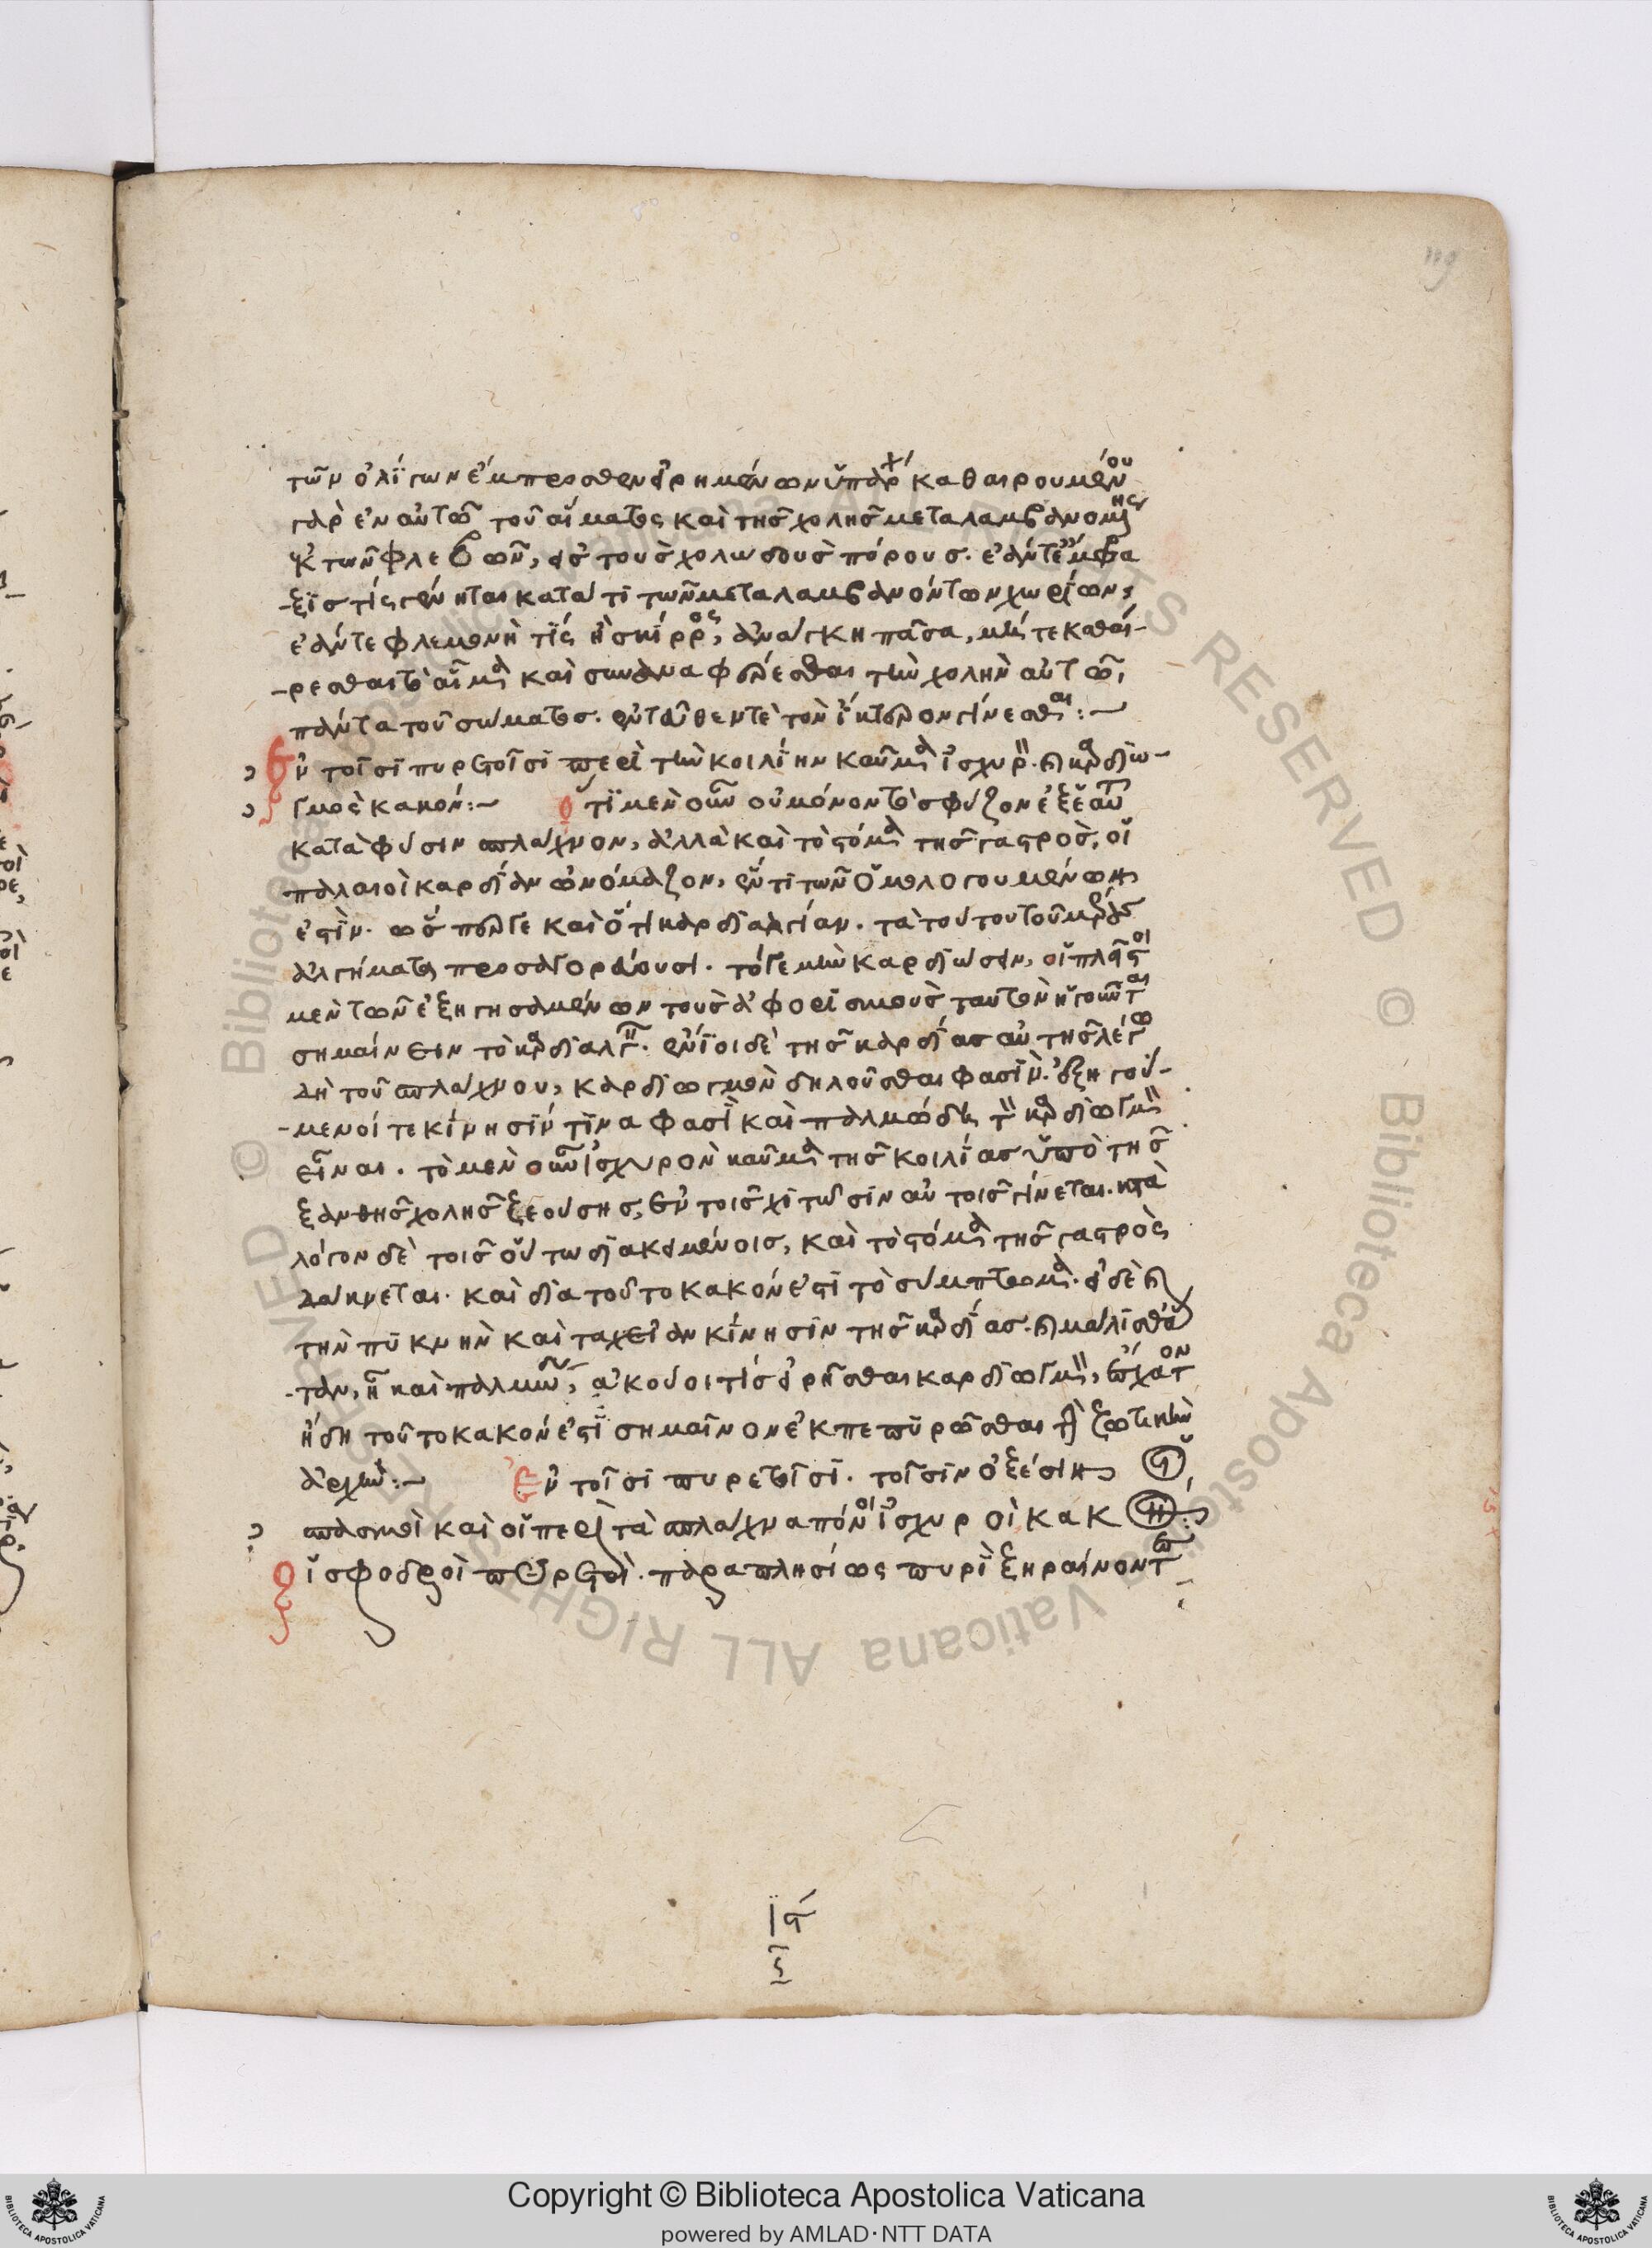 119
τῶν ὀλίγων ἔμπροσθεν εἰρημένων ὑπάρχ καθαιρουμένου
γὰρ ἐν αὐτῶ τοῦ αἵματος καὶ τῆς χολῆς μεταλαμβανομένης
ἐκ τῶν φλεβῶν, εἰς τοὺς χολώδους πόρους. ἐάντε ἔμφρα
-ξίς τίς γένηται κατά τι τῶν μεταλαμβανόντων χωρίων,
ἐάντε φλεμονὴ τίς ἢ σκίρρος, ἀνάγκη πᾶσα, μήτε καθαί-
-ρεσθαι τὸ αἷμα καὶ συναναφέρεσθαι τὴν χολὴν αὐτῶ,
πάντα τοῦ σώματος. ἐνταῦθεν τὲ τὸν ἴκτερον γίνεσθαι:
Ἐν τοῖσι πυρετοῖσι περὶ τὴν κοιλίην καῦμα ἰσχυρ. καὶ καρδιω-
γμὸς κακόν: Ὅτι μὲν οὖν οὐ μόνον τὸ σφύζον ἐξ ἑαυτ
κατὰ φύσιν σπλάγχνον, ἀλλὰ καὶ τὸ στόμα τῆς γαστρὸς, οἱ
παλαιοὶ καρδίαν ὠνόμαζον, ἕν τι τῶν ὁμολογουμένων
ἐστίν. ὥσπερ γε καὶ ὅτι καρδιαλγίαν. τὰ τούτου τοῦ μέρους
ἀλγήματα προσαγορεύουσι. τό γε μὴν καρδιώσσειν, οἱ πλεῖστοι
μὲν τῶν ἐξηγησαμένων τοὺς ἀφορισμοὺς ταυτὸν ἡγοῦνται
σημαίνειν τὸ καρδιαλγ. ἔνιοι δὲ τῆς καρδίας αὐτῆς λέγω
δὴ τοῦ σπλάγχνου, καρδιωγμὸν δηλοῦσθαι φασίν. ἐξηγού-
-μενοί τε κίνησίν τινα φασὶ καὶ παλμώδη τὸν καρδιωγμὸν
εἶναι. τὸ μὲν οὖν ἰσχυρὸν καῦμα τῆς κοιλίας ὑπὸ τῆς
ξανθῆς χολῆς ζεούσης, ἐν τοῖς χιτῶσιν αὐτοῖς γίνεται. κατὰ
λόγον δὲ τοῖς οὕτω διακειμένοις, καὶ τὸ στόμα τῆς γαστρὸς
δάκνεται. καὶ διὰ τοῦτο κακόν ἐστι τὸ σύμπτωμα. εἰ δὲ καὶ
τὴν πυκνὴν καὶ ταχεῖαν κίνησιν τῆς καρδίας. καὶ
-ταν, ἢ καὶ παλμὸν, ἀκούοι τίς εἰρῆσθαι καρδιωγμὸν, ἔσχατον
ἤδη τοῦτο κακόν ἐστι σημαῖνον ἐκπεπυρῶσθαι τὴν ζωτικὴν
ἀρχήν: Ἐν τοῖσι πυρετοῖσι. τοῖσιν ὀξέσιν
σπασμοὶ καὶ οἱ περὶ τὰ σπλάγχνα πόνοι ἰσχυροὶ κακ
Οἱ σφοδροὶ πυρετοὶ. παραπλησίως πυρὶ ξηραίνοντ